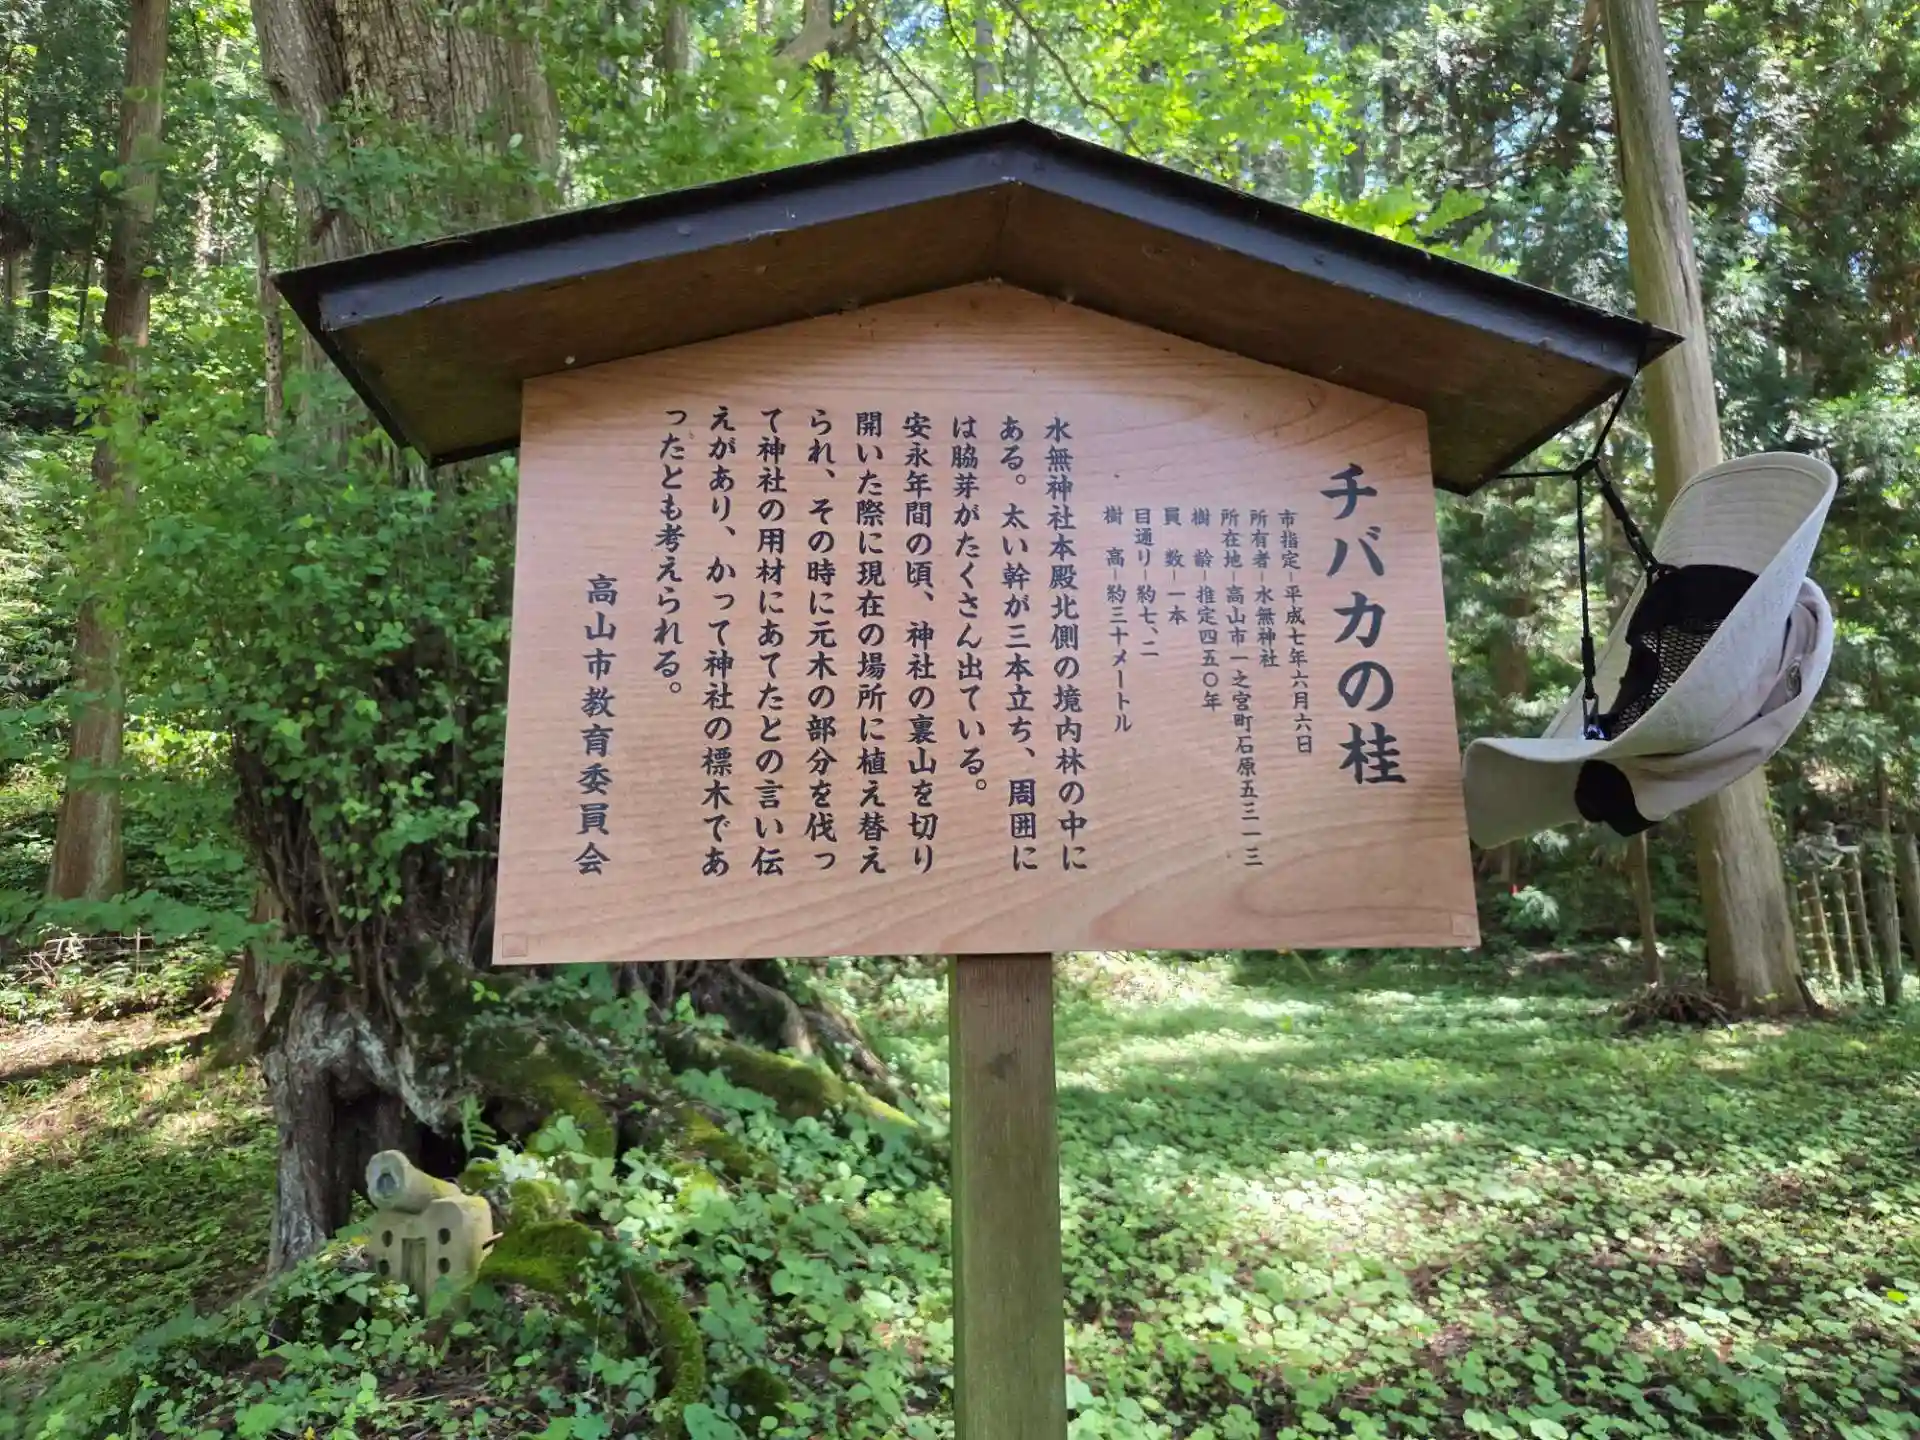 チバカの桂
市指定－平成七年六月六日
所有者－水無神社
所在地－高山市一之宮町石原五三一三
樹　齢－推定四五〇年
員　数－一本
目通り－約七、二
樹　高－約三十メートル
水無神社本殿北側の境内林の中に
ある。太い幹が三本立ち、周囲に
は脇芽がたくさん出ている。
安永年間の頃、神社の裏山を切り
開いた際に現在の場所に植え替え
られ、その時に元木の部分を伐っ
て神社の用材にあてたとの言い伝
えがあり、かって神社の標木であ
ったとも考えられる。
高山市教育委員会